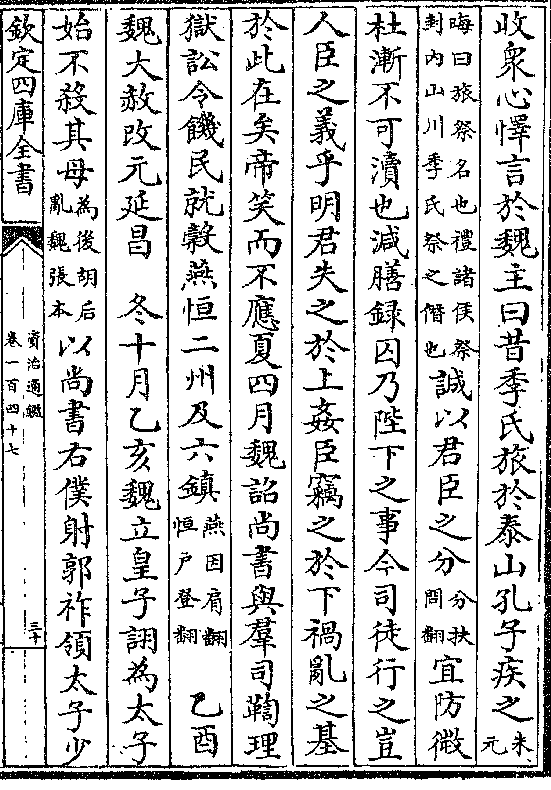 收衆心懌言於魏主曰昔季氏旅於泰山孔子疾之朱元
晦曰旅祭名也禮諸侯祭封内山川季氏祭之僭也誠以君臣之分分扶問翻宜防微
杜漸不可瀆也減膳録囚乃陛下之事今司徒行之豈
人臣之義乎明君失之於上姦臣竊之於下禍亂之基
於此在矣帝笑而不應夏四月魏詔尚書與羣司鞫理
獄訟令饑民就穀燕恒二州及六鎮燕因肩翻恒户登翻乙酉
魏大赦改元延昌　冬十月乙亥魏立皇子詡為太子
始不殺其母為後胡后亂魏張本以尚書右僕射郭祚領太子少
欽定四庫全書
資治通鑑
卷一百四十七
三十